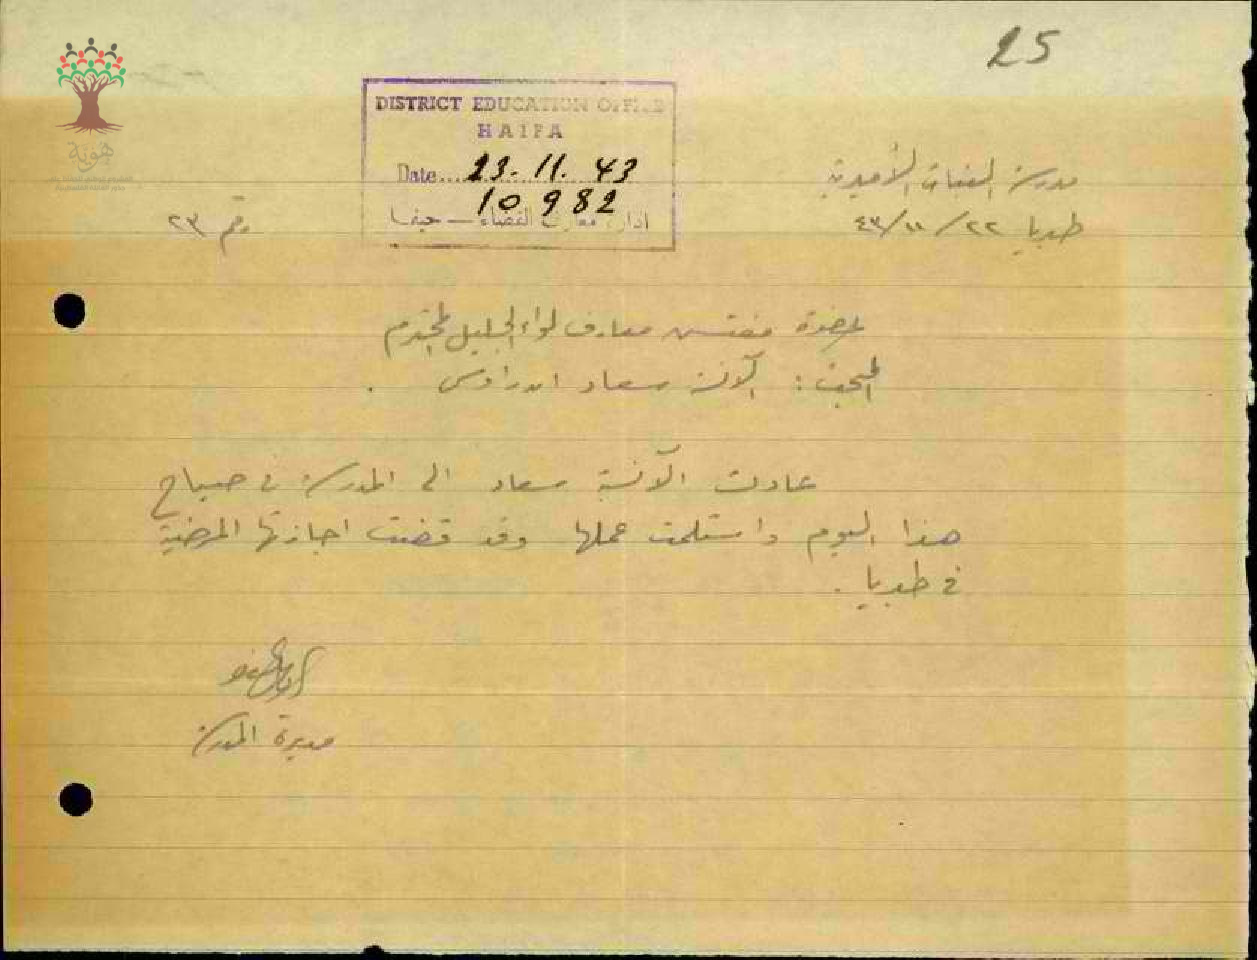 25
هوية
DISTRICT EDUCATION OFFICE
HAIFA
Date.... 23. 11. 43
10982
ادارة معارف القضاء — حيفا
مدرسة البنات الأميرية
طبريا ٢٢/١١/٤٣
رقم ٢٣
حضرة مفتش معارف لواء الجليل المحترم
المبحث: الآنسة سعاد اندراوس .
عادت الآنسة سعاد الى المدرسة في صباح
هذا اليوم واستلمت عملها وقد قضت اجازتها المرضية
في طبريا .
مديرة المدرسة